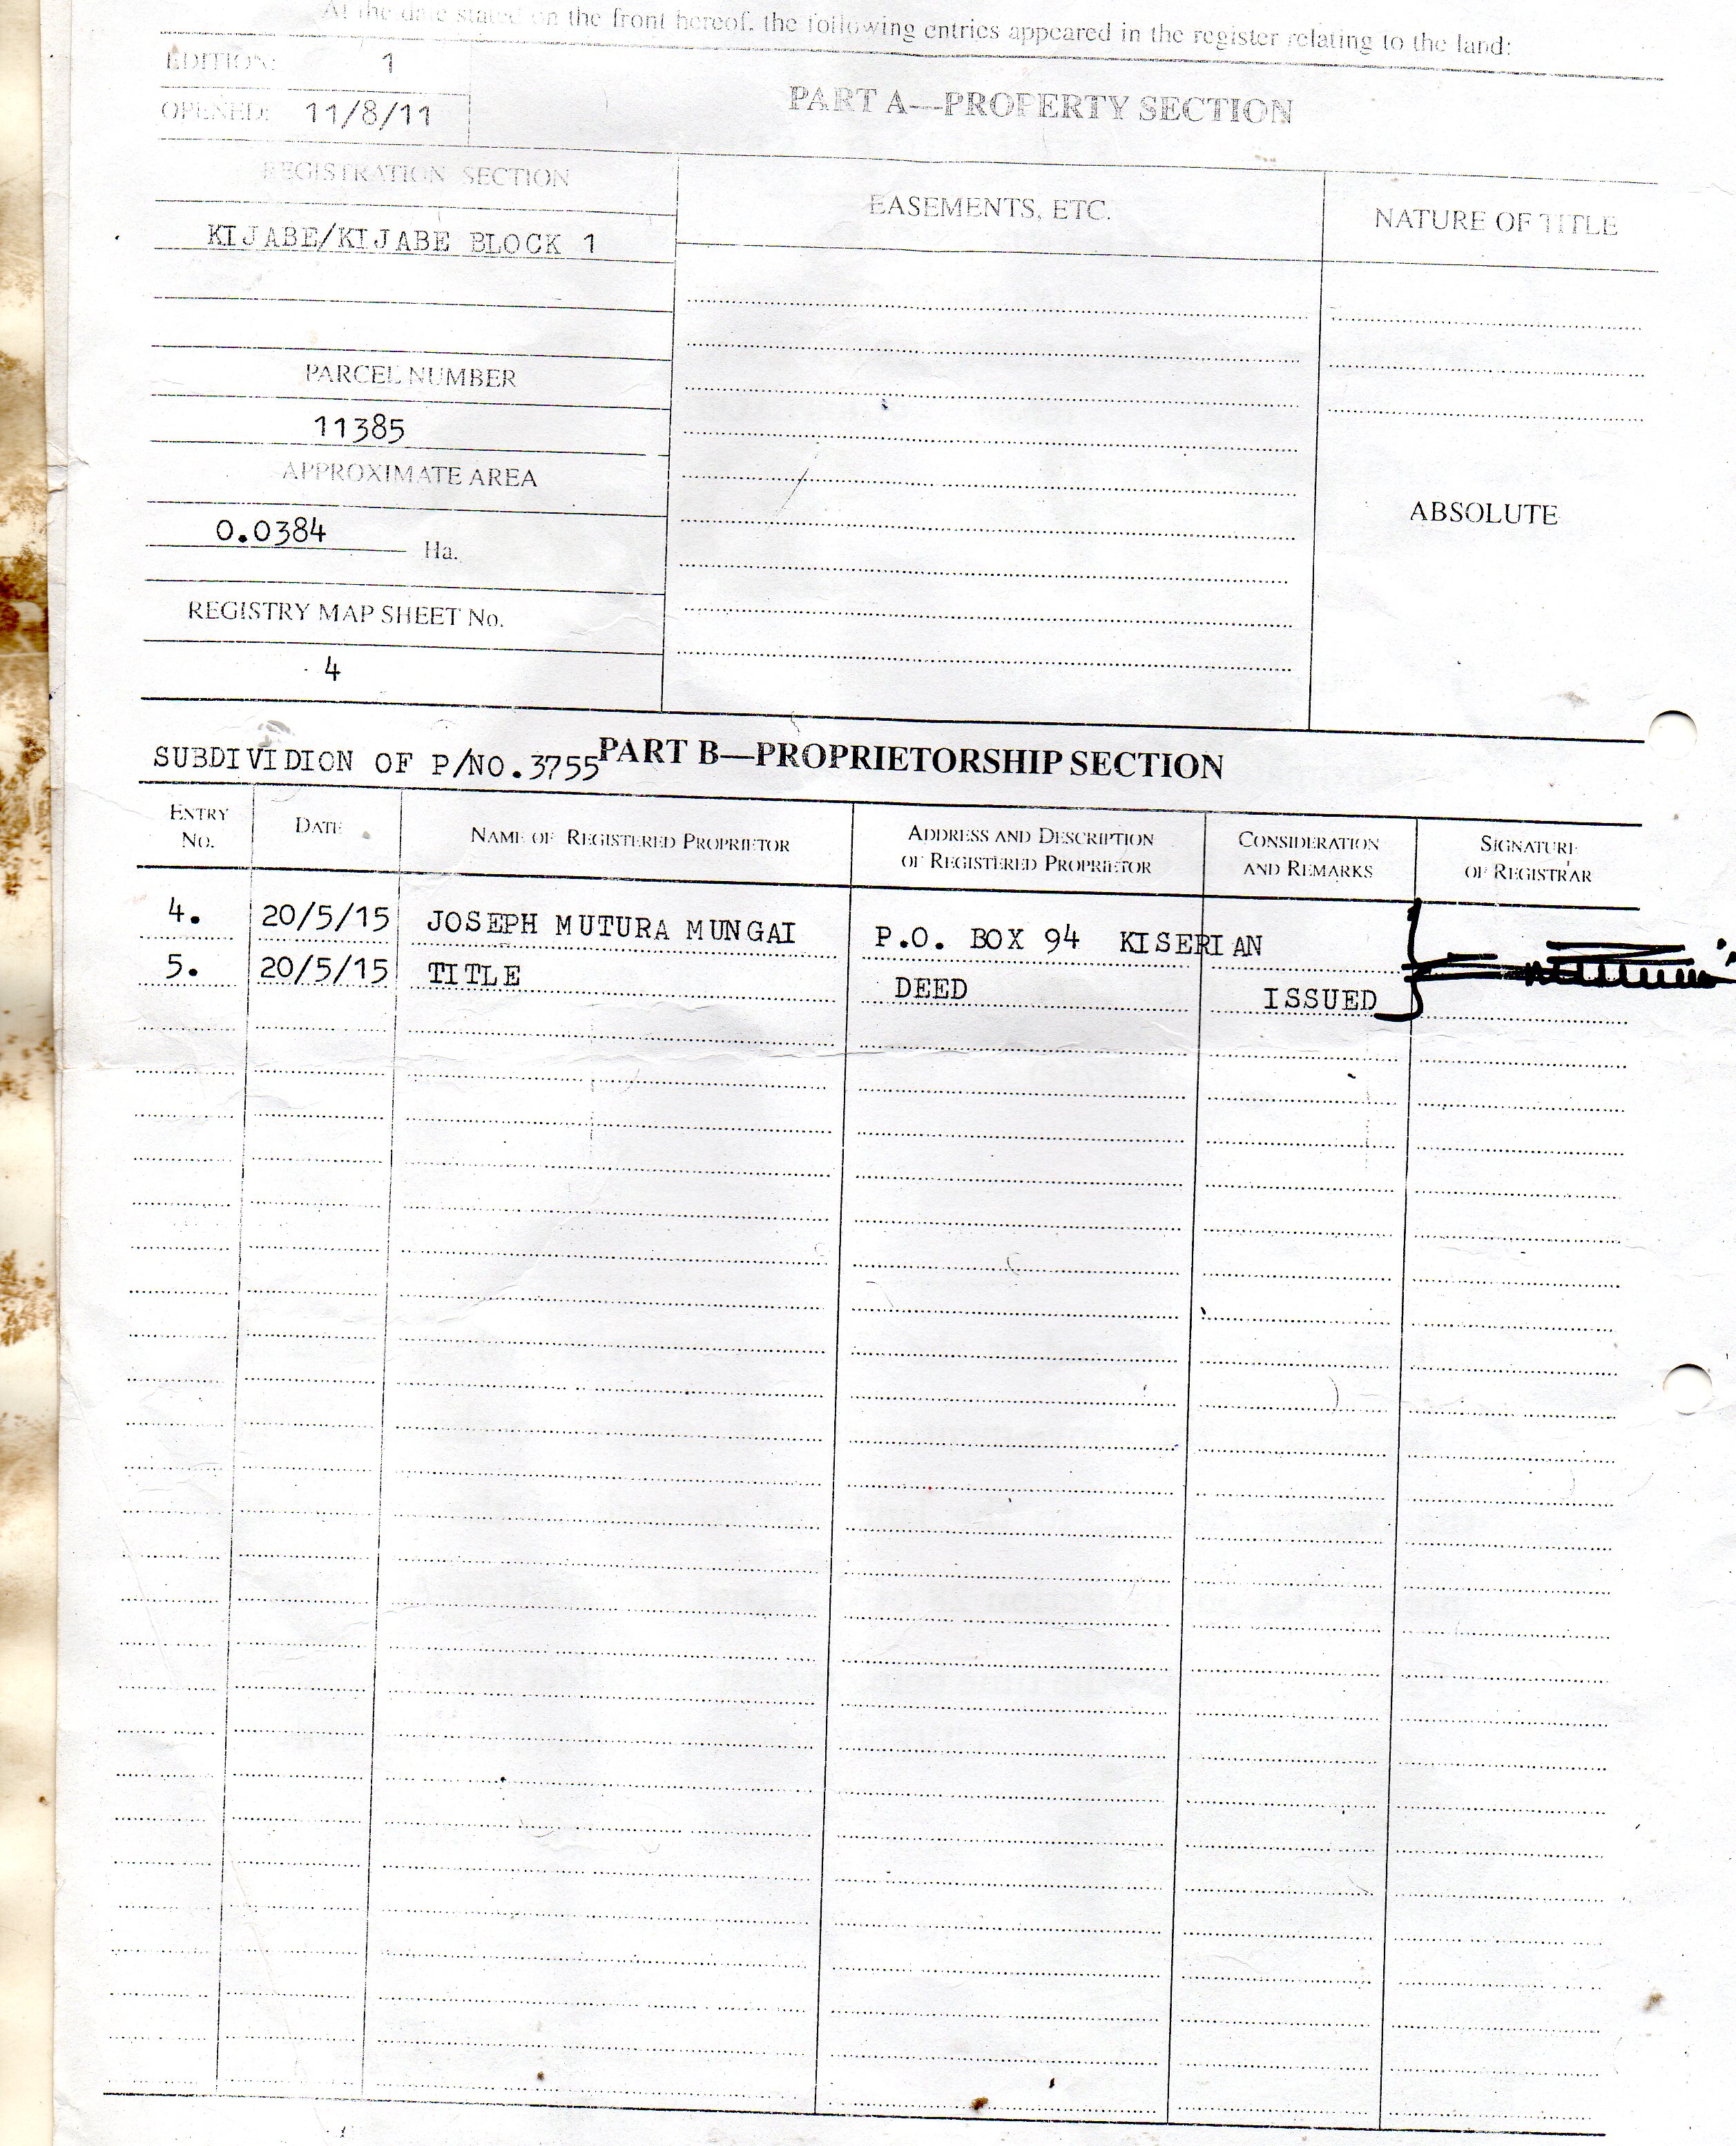 At the date stated on the front hereof, the following entries appeared in the register relating to the land:
EDITION: 1
OPENED: 11/8/11
PART A—PROPERTY SECTION
REGISTRATION SECTION
KIJABE/KIJABE BLOCK 1
PARCEL NUMBER
11385
APPROXIMATE AREA
0.0384 Ha.
REGISTRY MAP SHEET No.
4
EASEMENTS, ETC.
NATURE OF TITLE
ABSOLUTE
SUBDIVIDION OF P/NO.3755
PART B—PROPRIETORSHIP SECTION
ENTRY No.
DATE
NAME OF REGISTERED PROPRIETOR
ADDRESS AND DESCRIPTION
OF REGISTERED PROPRIETOR
CONSIDERATION
AND REMARKS
SIGNATURE
OF REGISTRAR
4. 20/5/15 JOSEPH MUTURA MUNGAI P.O. BOX 94 KISERIAN
5. 20/5/15 TITLE DEED ISSUED